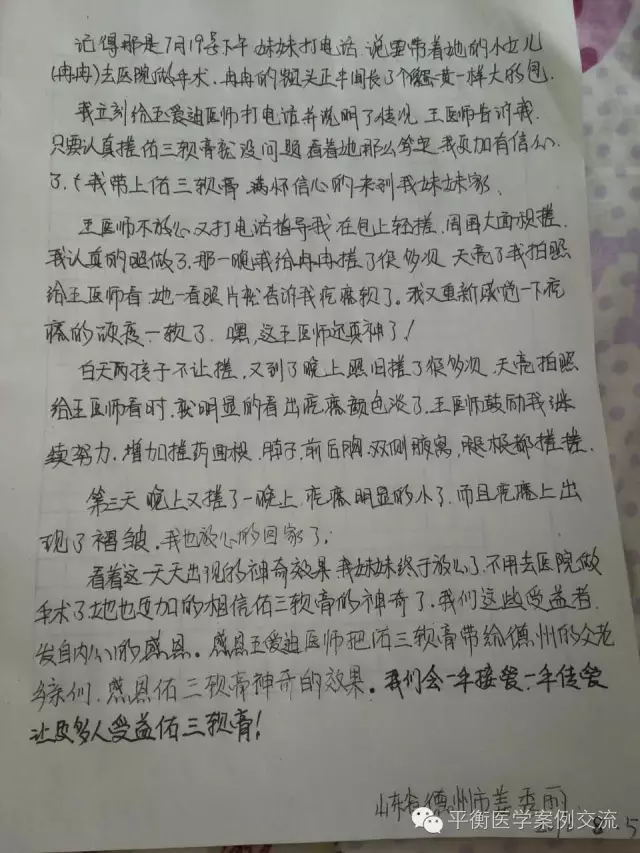 记得那是7月19号下午妹妹打电话说要带着她的小女儿
(冉冉)去医院做手术.冉冉的额头正中间长了个像蛋黄一样大的包.
我立刻给王爱迪医师打电话并说明了情况 王医师告诉我.
只要认真搓佑三软膏就没问题 看着她那么笃定 我更加有信心
了.我带上佑三软膏 满怀信心的来到我妹妹家.
王医师不放心 又打电话指导我 在包上轻搓.周围大面积搓.
我认真的照做了.那一晚我给冉冉搓了很多次 天亮了我拍照
给王医师看.她一看照片就告诉我疙瘩软了.我又重新感觉一下疙
瘩的硬度.软了.嘿,这王医师还真神了!
白天两孩子不让搓.又到了晚上照旧搓了很多次.天亮拍照
给王医师看时.就明显的看出疙瘩颜色淡了.王医师鼓励我继
续努力.增加搓药面积.脖子.前后胸.双侧腋窝,腿根都搓搓.
第三天晚上又搓了一晚上.疙瘩明显的小了.而且疙瘩上出
现了褶皱.我也放心的回家了.
看着这一天天出现的神奇效果 我妹妹终于放心了.不用去医院做
手术了.她也更加的相信佑三软膏的神奇了.我们这些受益者.
发自内心的感恩.感恩王爱迪医师把佑三软膏带给德州的父老
乡亲们.感恩佑三软膏神奇的效果.我们会一手接爱.一手传爱
让更多人受益佑三软膏!
山东省德州市姜秀丽
8.5
平衡医学案例交流